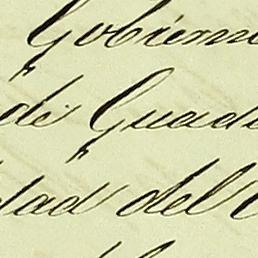 Gobierno
de Guada
dad del